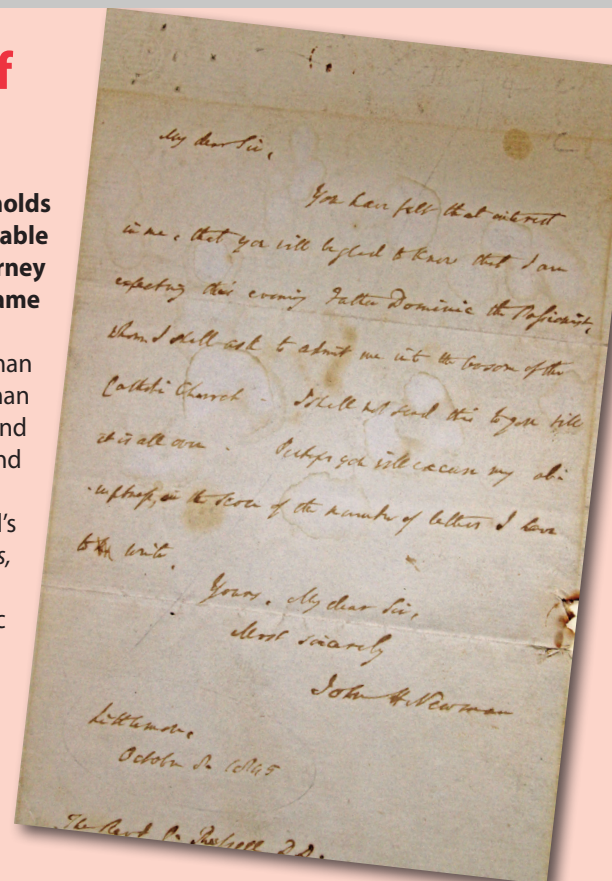 f
holds
able
rney
ame
man
man
nd
nd
l's
s,
c
My dear Sir,
You have felt that interest
in me, that you will be glad to know that I am
expecting this evening Father Dominic the Passionist,
whom I shall ask to admit me into the bosom of the
Catholic Church. I shall not send this to you till
it is all over. Perhaps you will excuse my ab-
-ruptness, on the score of the number of letters I have
to write.
Yours, My dear Sir,
Most sincerely
John H Newman
Littlemore,
October 8. 1845
The Revd C. Russell D.D.